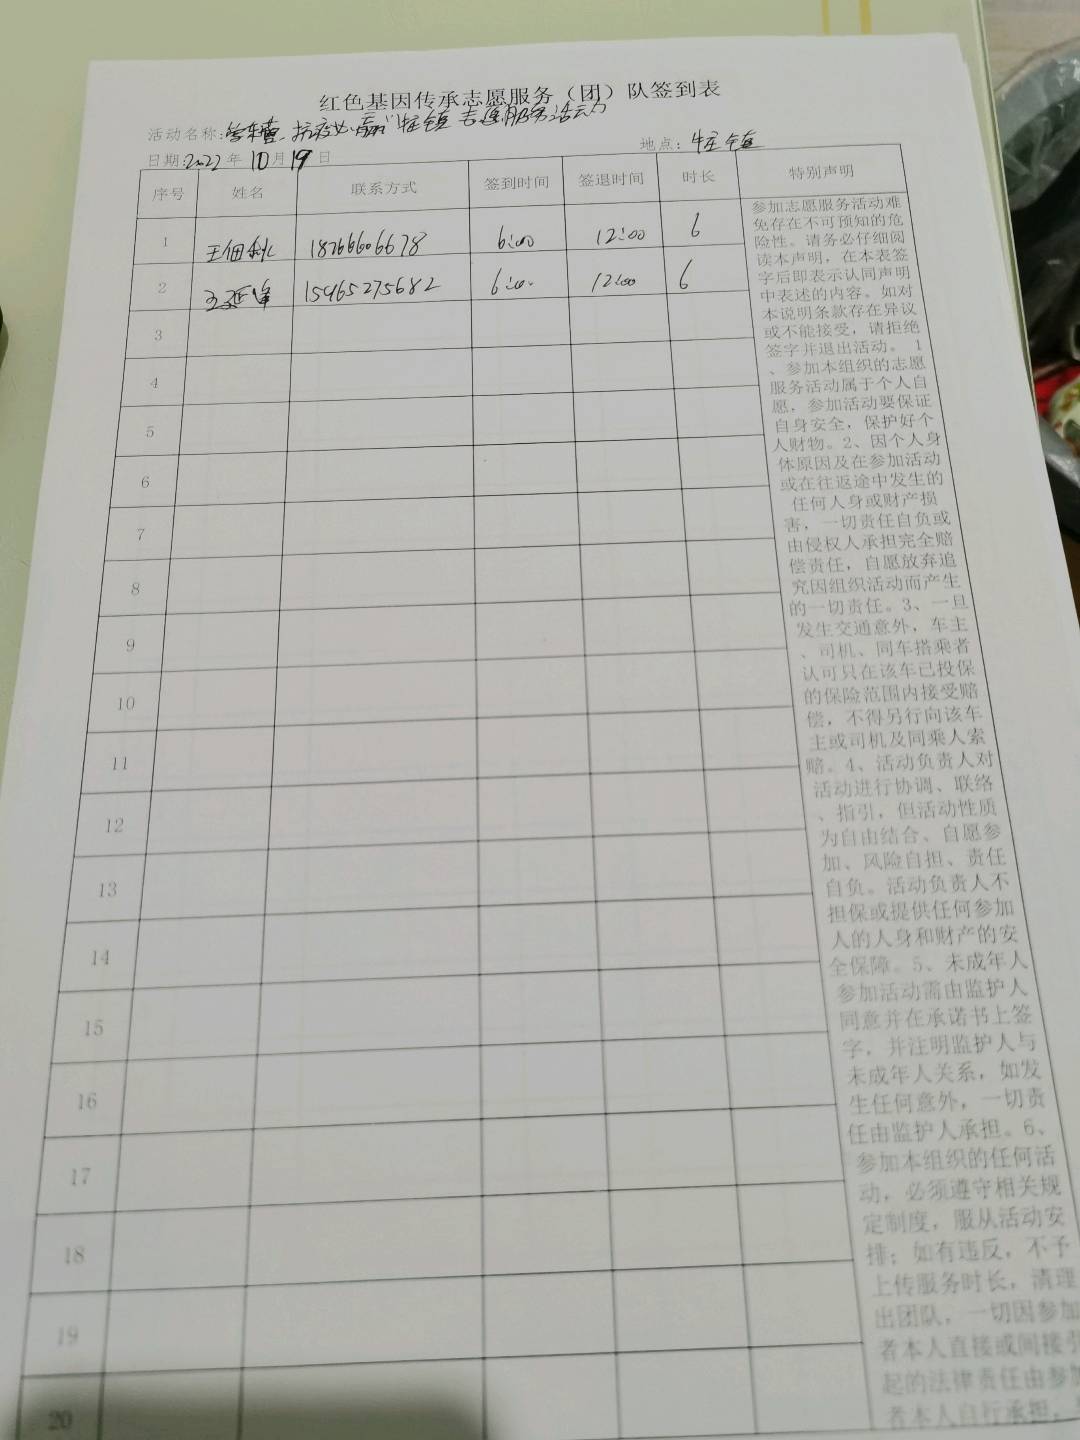 红色基因传承志愿服务（团）队签到表
活动名称: 抗疫必赢"牛庄镇志愿服务活动
日期:2022年10月19日
地点: 牛庄镇
序号 姓名 联系方式 签到时间 签退时间 时长 特别声明
1 王佃秋 18266606678 6:00 12:00 6
2 王延峰 15965275682 6:00 12:00 6
3
4
5
6
7
8
9
10
11
12
13
14
15
16
17
18
19
20
参加志愿服务活动难
免存在不可预知的危
险性。请务必仔细阅
读本声明，在本表签
字后即表示认同声明
中表述的内容。如对
本说明条款存在异议
或不能接受，请拒绝
签字并退出活动。 1
、参加本组织的志愿
服务活动属于个人自
愿，参加活动要保证
自身安全，保护好个
人财物。2、因个人身
体原因及在参加活动
或在往返途中发生的
任何人身或财产损
害，一切责任自负或
由侵权人承担完全赔
偿责任，自愿放弃追
究因组织活动而产生
的一切责任。3、一旦
发生交通意外，车主
、司机、同车搭乘者
认可只在该车已投保
的保险范围内接受赔
偿，不得另行向该车
主或司机及同乘人索
赔。4、活动负责人对
活动进行协调、联络
、指引，但活动性质
为自由结合、自愿参
加、风险自担、责任
自负。活动负责人不
担保或提供任何参加
人的人身和财产的安
全保障。5、未成年人
参加活动需由监护人
同意并在承诺书上签
字，并注明监护人与
未成年人关系，如发
生任何意外，一切责
任由监护人承担。6、
参加本组织的任何活
动，必须遵守相关规
定制度，服从活动安
排；如有违反，不予
上传服务时长，清理
出团队，一切因参加
者本人直接或间接引
起的法律责任由参加
者本人自行承担，